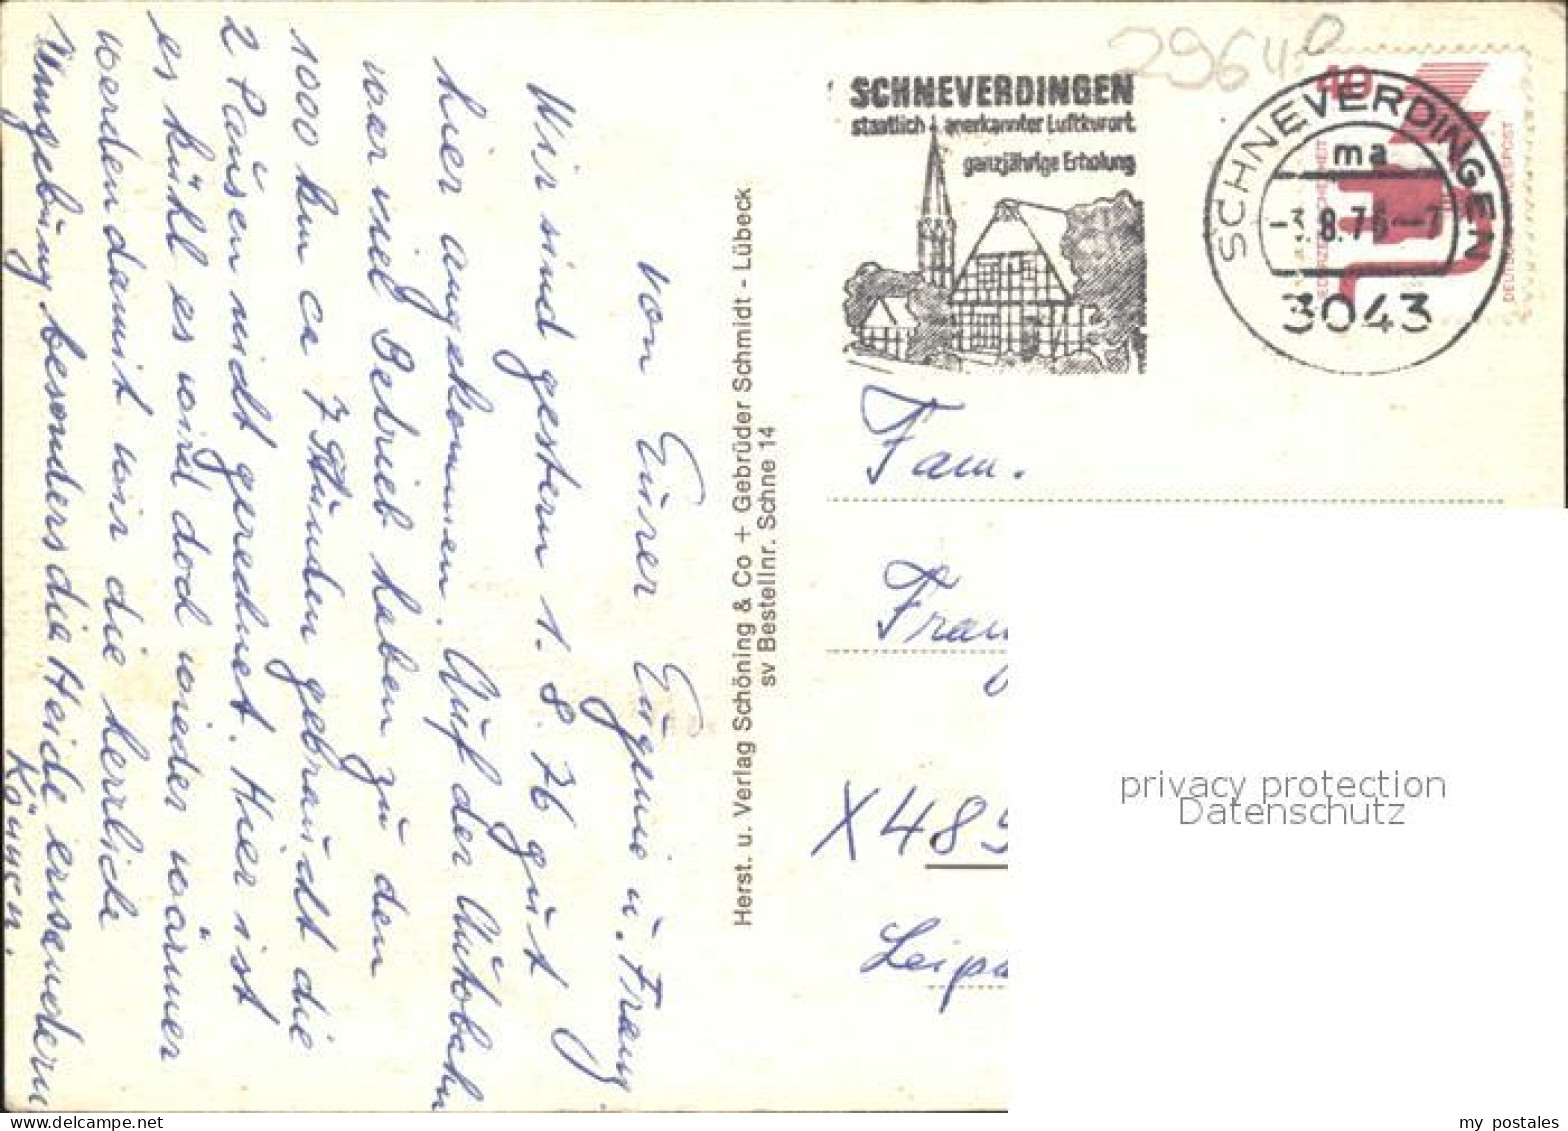 Wir sind gestern 1. 8. 76 gut
hier angekommen. Auf der Autobahn
war viel Betrieb haben zu den
1000 km ca 7 Stunden gebraucht die
2 Pausen nicht gerechnet. Hier ist
es kühl es wird doch wieder wärmer
werden damit wir die herrliche
Umgebung besonders die Heide
können.
von Eurer Eugenie u. Franz
Herst. u. Verlag Schöning & Co + Gebrüder Schmidt - Lübeck
sv Bestellnr. Schne 14
29640
SCHNEVERDINGEN
staatlich anerkannter Luftkurort
ganzjährige Erholung
SCHNEVERDINGEN
ma
-3.8.76--7
3043
40
DEUTSCHE BUNDESPOST
JEDERZEIT SICHERHEIT
Fam.
X 485
privacy protection
Datenschutz
my postales